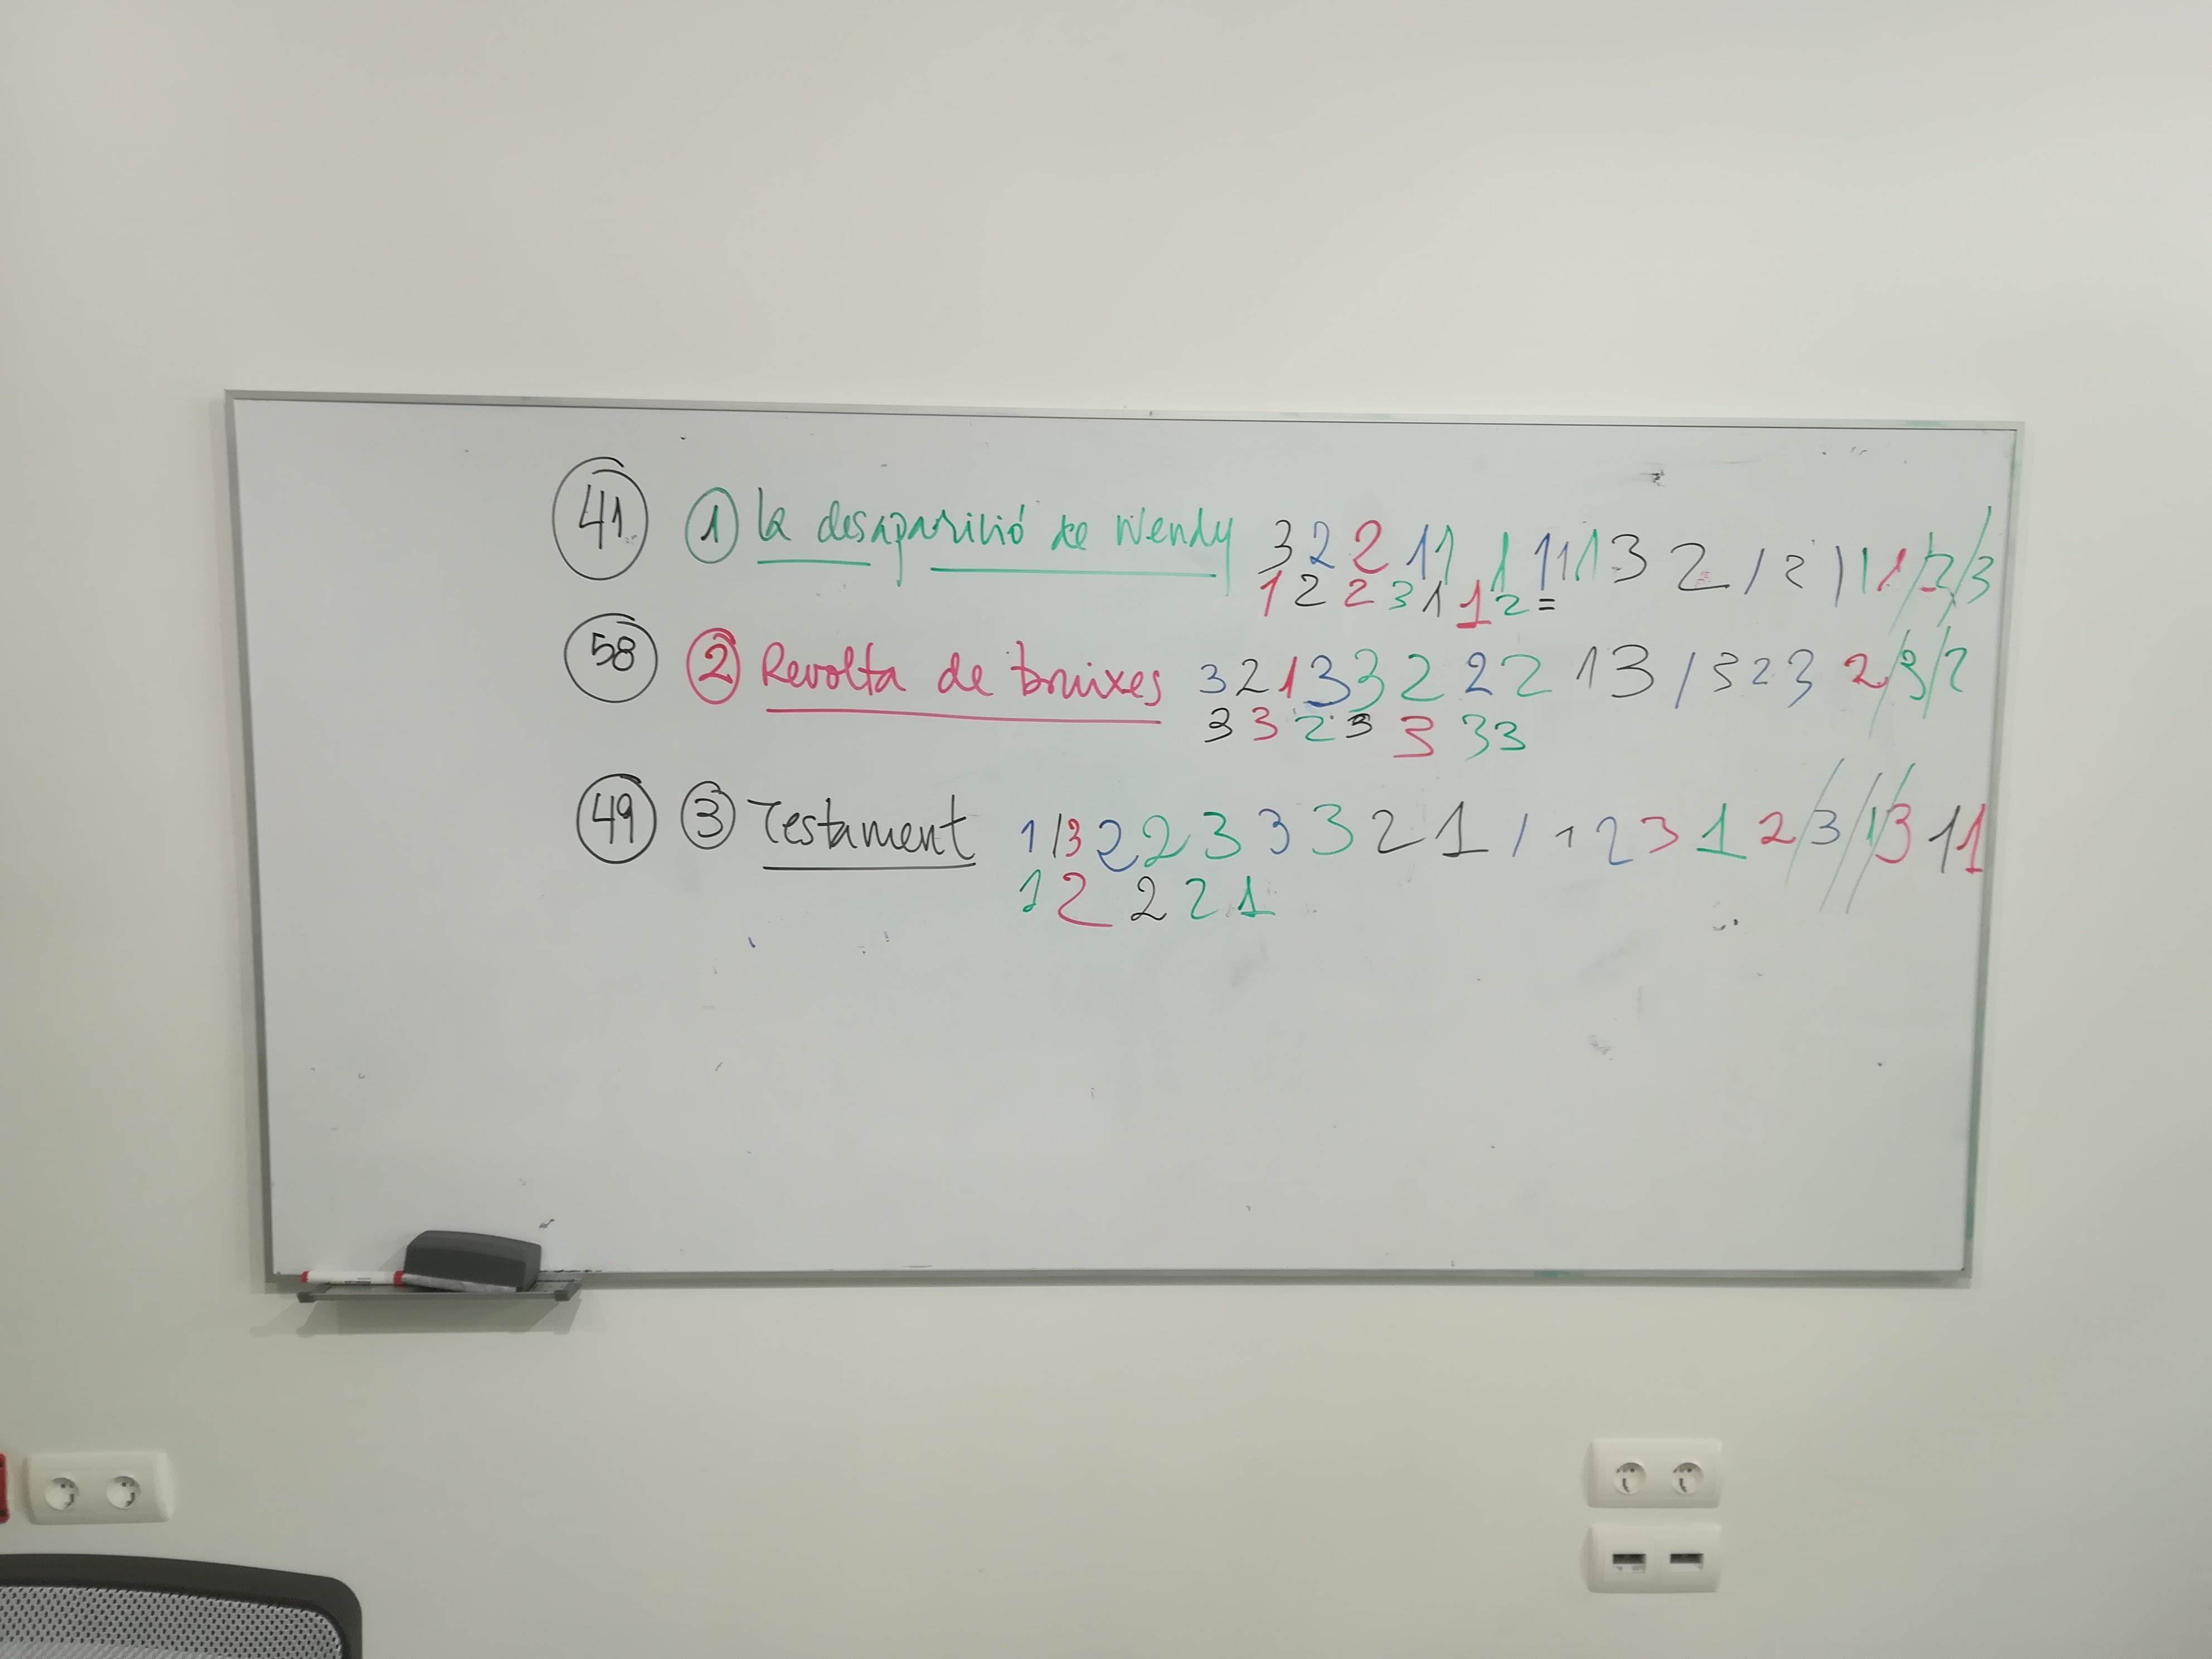 41 1 la desaparició de Wendy 3 2 2 1 1 1 1 1 1 3 2 / 2 ) 1 1 / 2 / 3
1 2 2 3 1 1 2 =
58 2 Revolta de bruixes 3 2 1 3 3 2 2 2 1 3 / 3 2 3 2 / 3 / 2
3 3 2 3 3 3 3
49 3 Testament 1 1 3 2 2 3 3 3 2 1 / 1 2 3 1 2 / 3 / 1 / 3 1 1
1 2 2 2 1